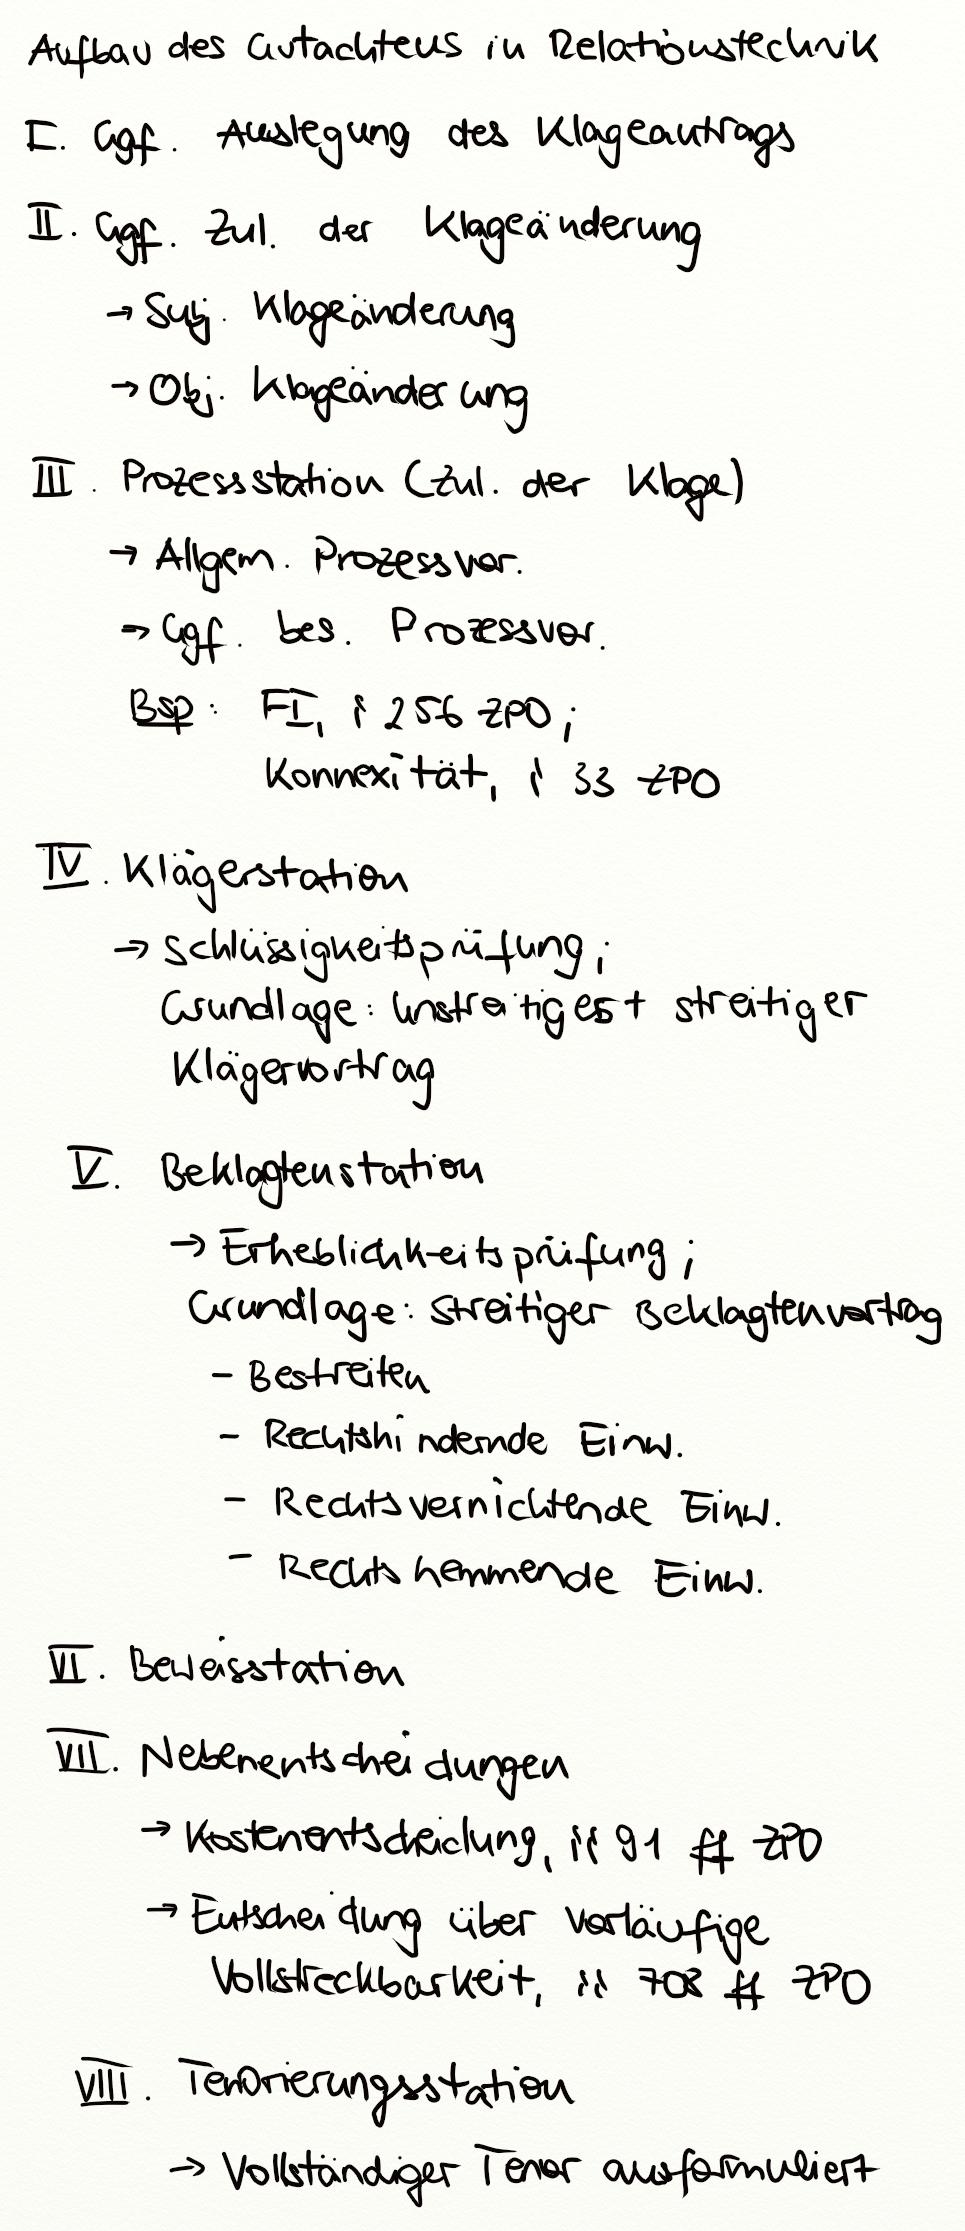 Aufbau des Gutachtens in Relationstechnik
I. Ggf. Auslegung des Klageantrags
II. Ggf. Zul. der Klageänderung
→ Subj. Klageänderung
→ Obj. Klageänderung
III. Prozessstation (Zul. der Klage)
→ Allgem. Prozessvor.
→ Ggf. bes. Prozessvor.
Bsp: FI, § 256 ZPO;
Konnexität, § 33 ZPO
IV. Klägerstation
→ Schlüssigkeitsprüfung;
Grundlage: Unstreitiges + streitiger
Klägervortrag
V. Beklagtenstation
→ Erheblichkeitsprüfung;
Grundlage: streitiger Beklagtenvortrag
- Bestreiten
- Rechtshindernde Einw.
- Rechtsvernichtende Einw.
- Rechtshemmende Einw.
VI. Beweisstation
VII. Nebenentscheidungen
→ Kostenentscheidung, §§ 91 ff ZPO
→ Entscheidung über vorläufige
Vollstreckbarkeit, §§ 708 ff ZPO
VIII. Tenorierungsstation
→ Vollständiger Tenor ausformuliert